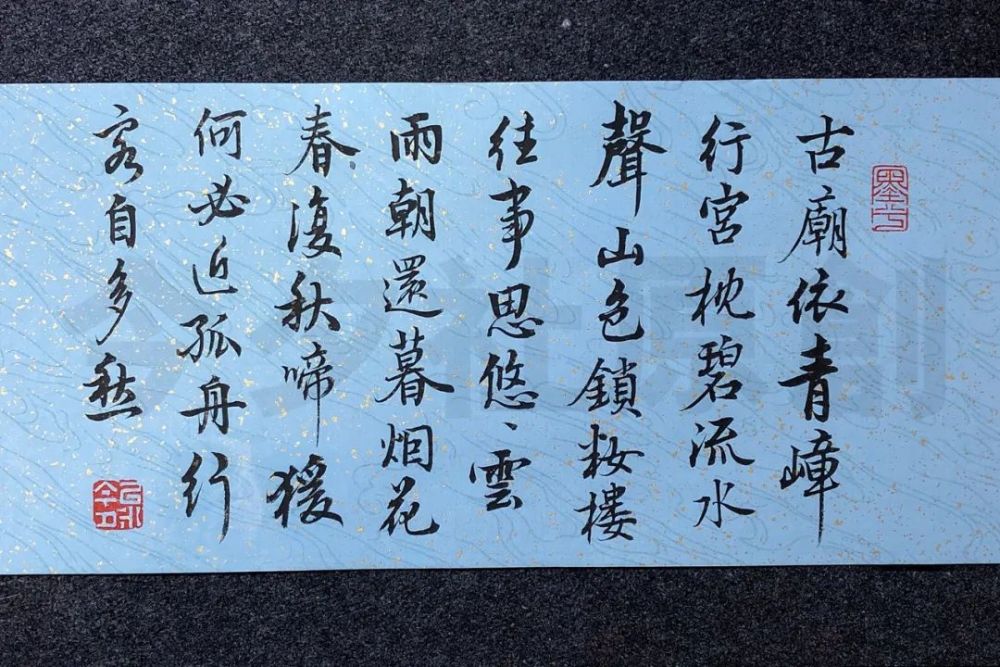 古廟依青嶂
行宮枕碧流水
聲山色鎖籹樓
往事思悠〻雲
雨朝還暮烟花
春復秋啼猨
何必近孤舟行
客自多愁
今夕社原創